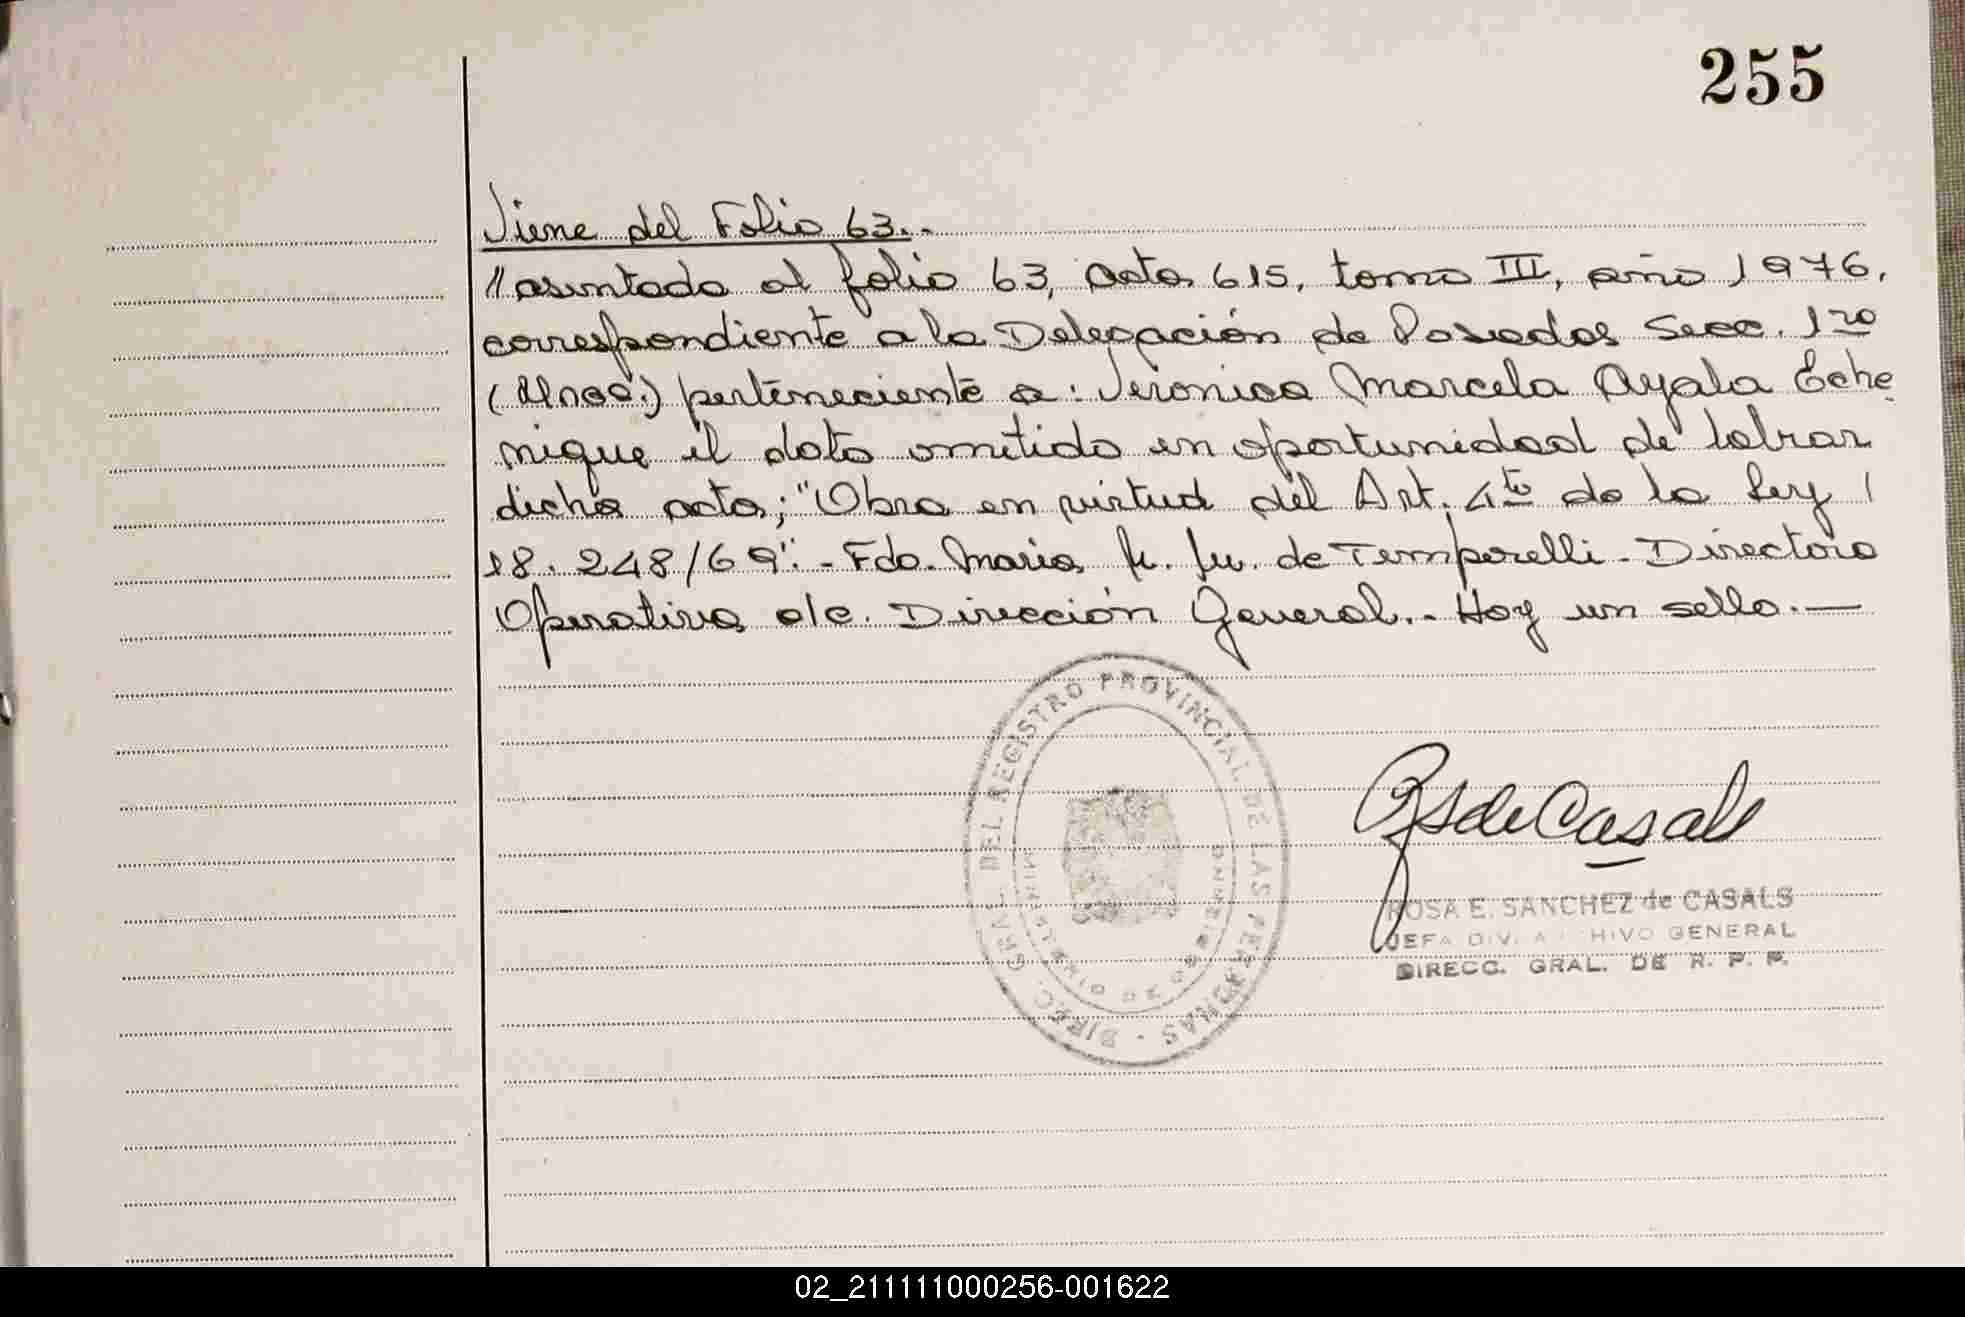 255
Viene del Folio 63.-
//asentada al folio 63, acta 615, tomo III, año 1976,
correspondiente a la Delegación de Posadas Secc. 1ra
(Mnes.) perteneciente a: Veronica Marcela Ayala Eche
nique el dato omitido en oportunidad de labrar
dicha acta; "Obra en virtud del Art. 4to de la Ley /
18.248/69".- Fdo. Maria de Temporelli - Directora
Operativa a/c. Dirección General.- Hay un sello.—
DIREC. GRAL. DEL REGISTRO PROVINCIAL DE LAS PERSONAS
MINISTERIO DE GOBIERNO
RS de Casals
ROSA E. SANCHEZ de CASALS
JEFA DIV. ARCHIVO GENERAL
DIRECC. GRAL. DE R. P. P.
02_211111000256-001622